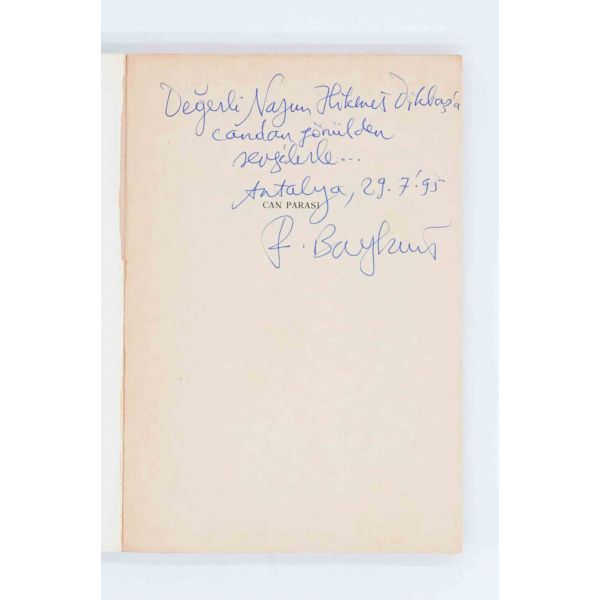 Değerli Nazım Hikmet Dikbaş'a
candan gönülden
sevgilerle...
Antalya, 29.7.'95
CAN PARASI
F. Baykurt